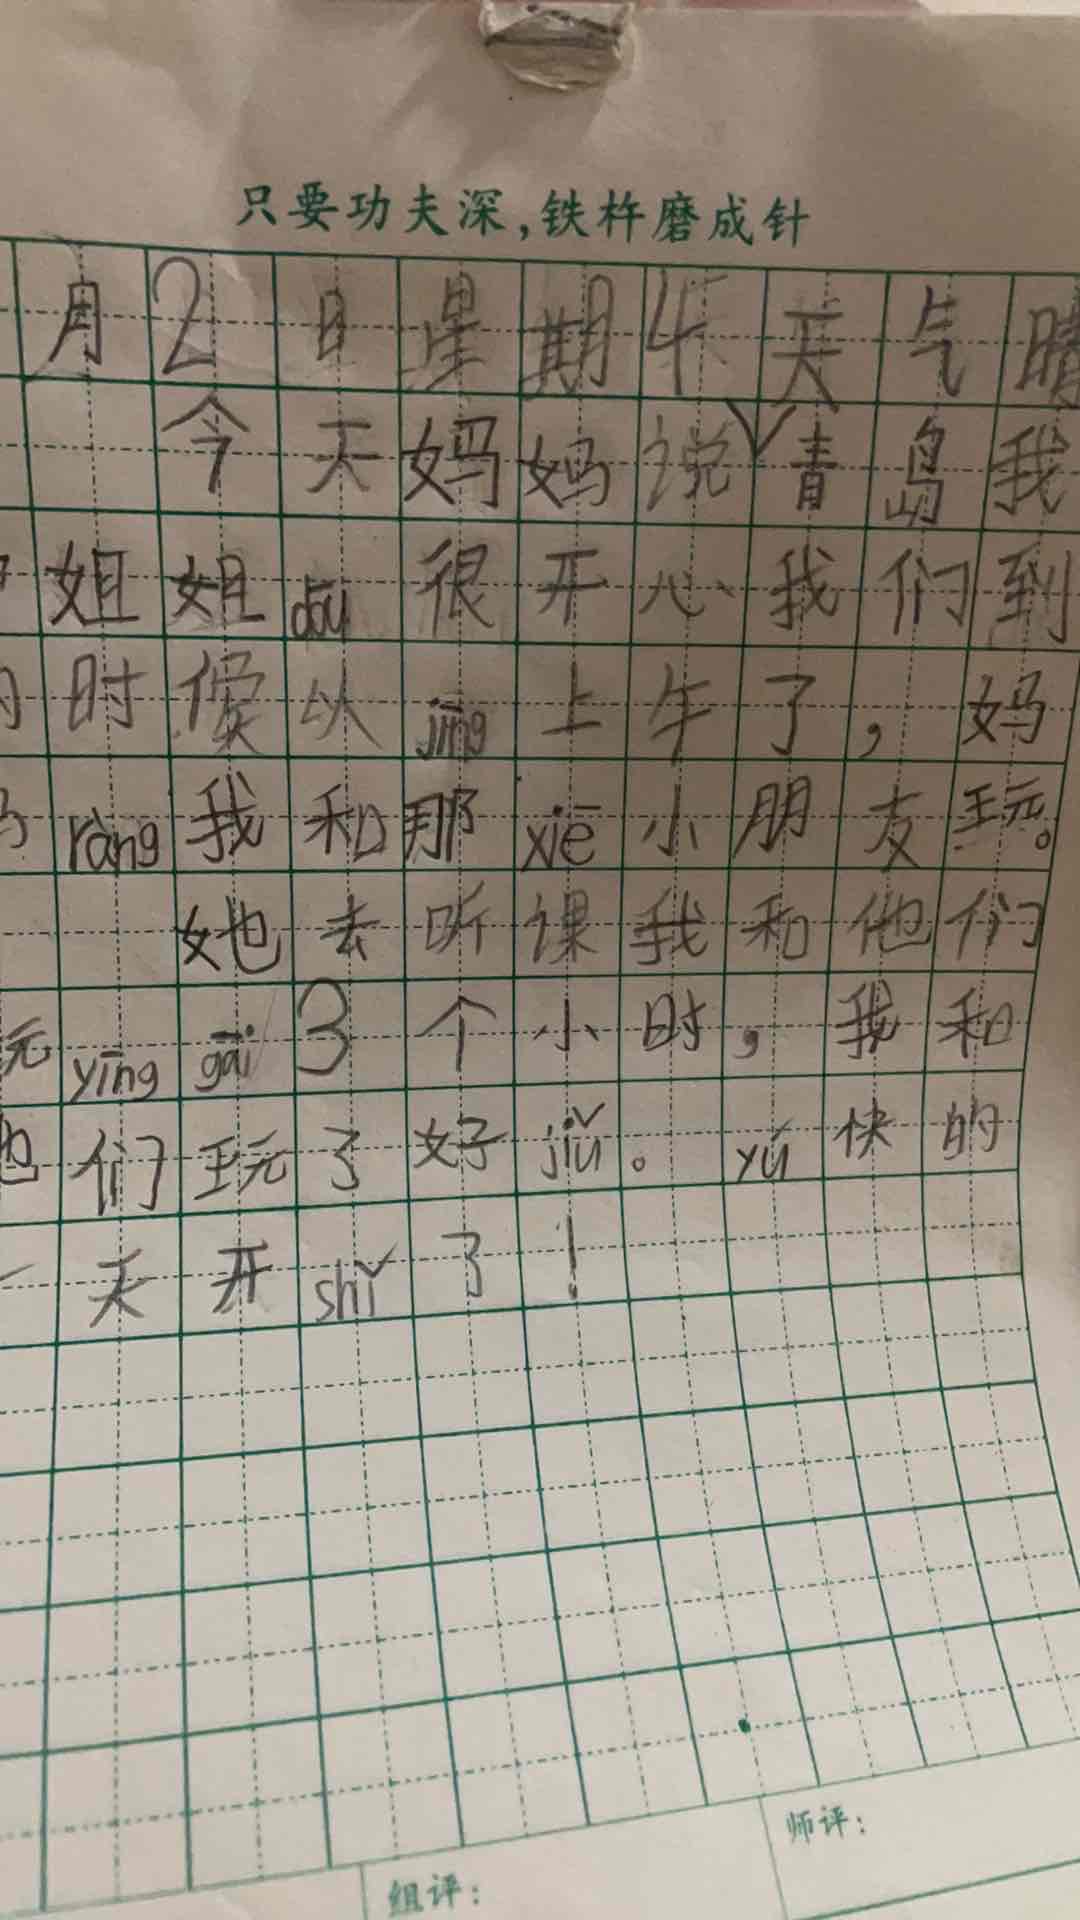 只要功夫深,铁杵磨成针
月2日星期4天气晴
今天妈妈说青岛我
姐姐dōu很开心我们到
时候以jīng上午了，妈
ràng我和那xiē小朋友玩。
她去听课我和他们
yīng gāi 3个小时，我和
们玩了好jiǔ。yú快的
一天开shǐ了！
师评：
组评：